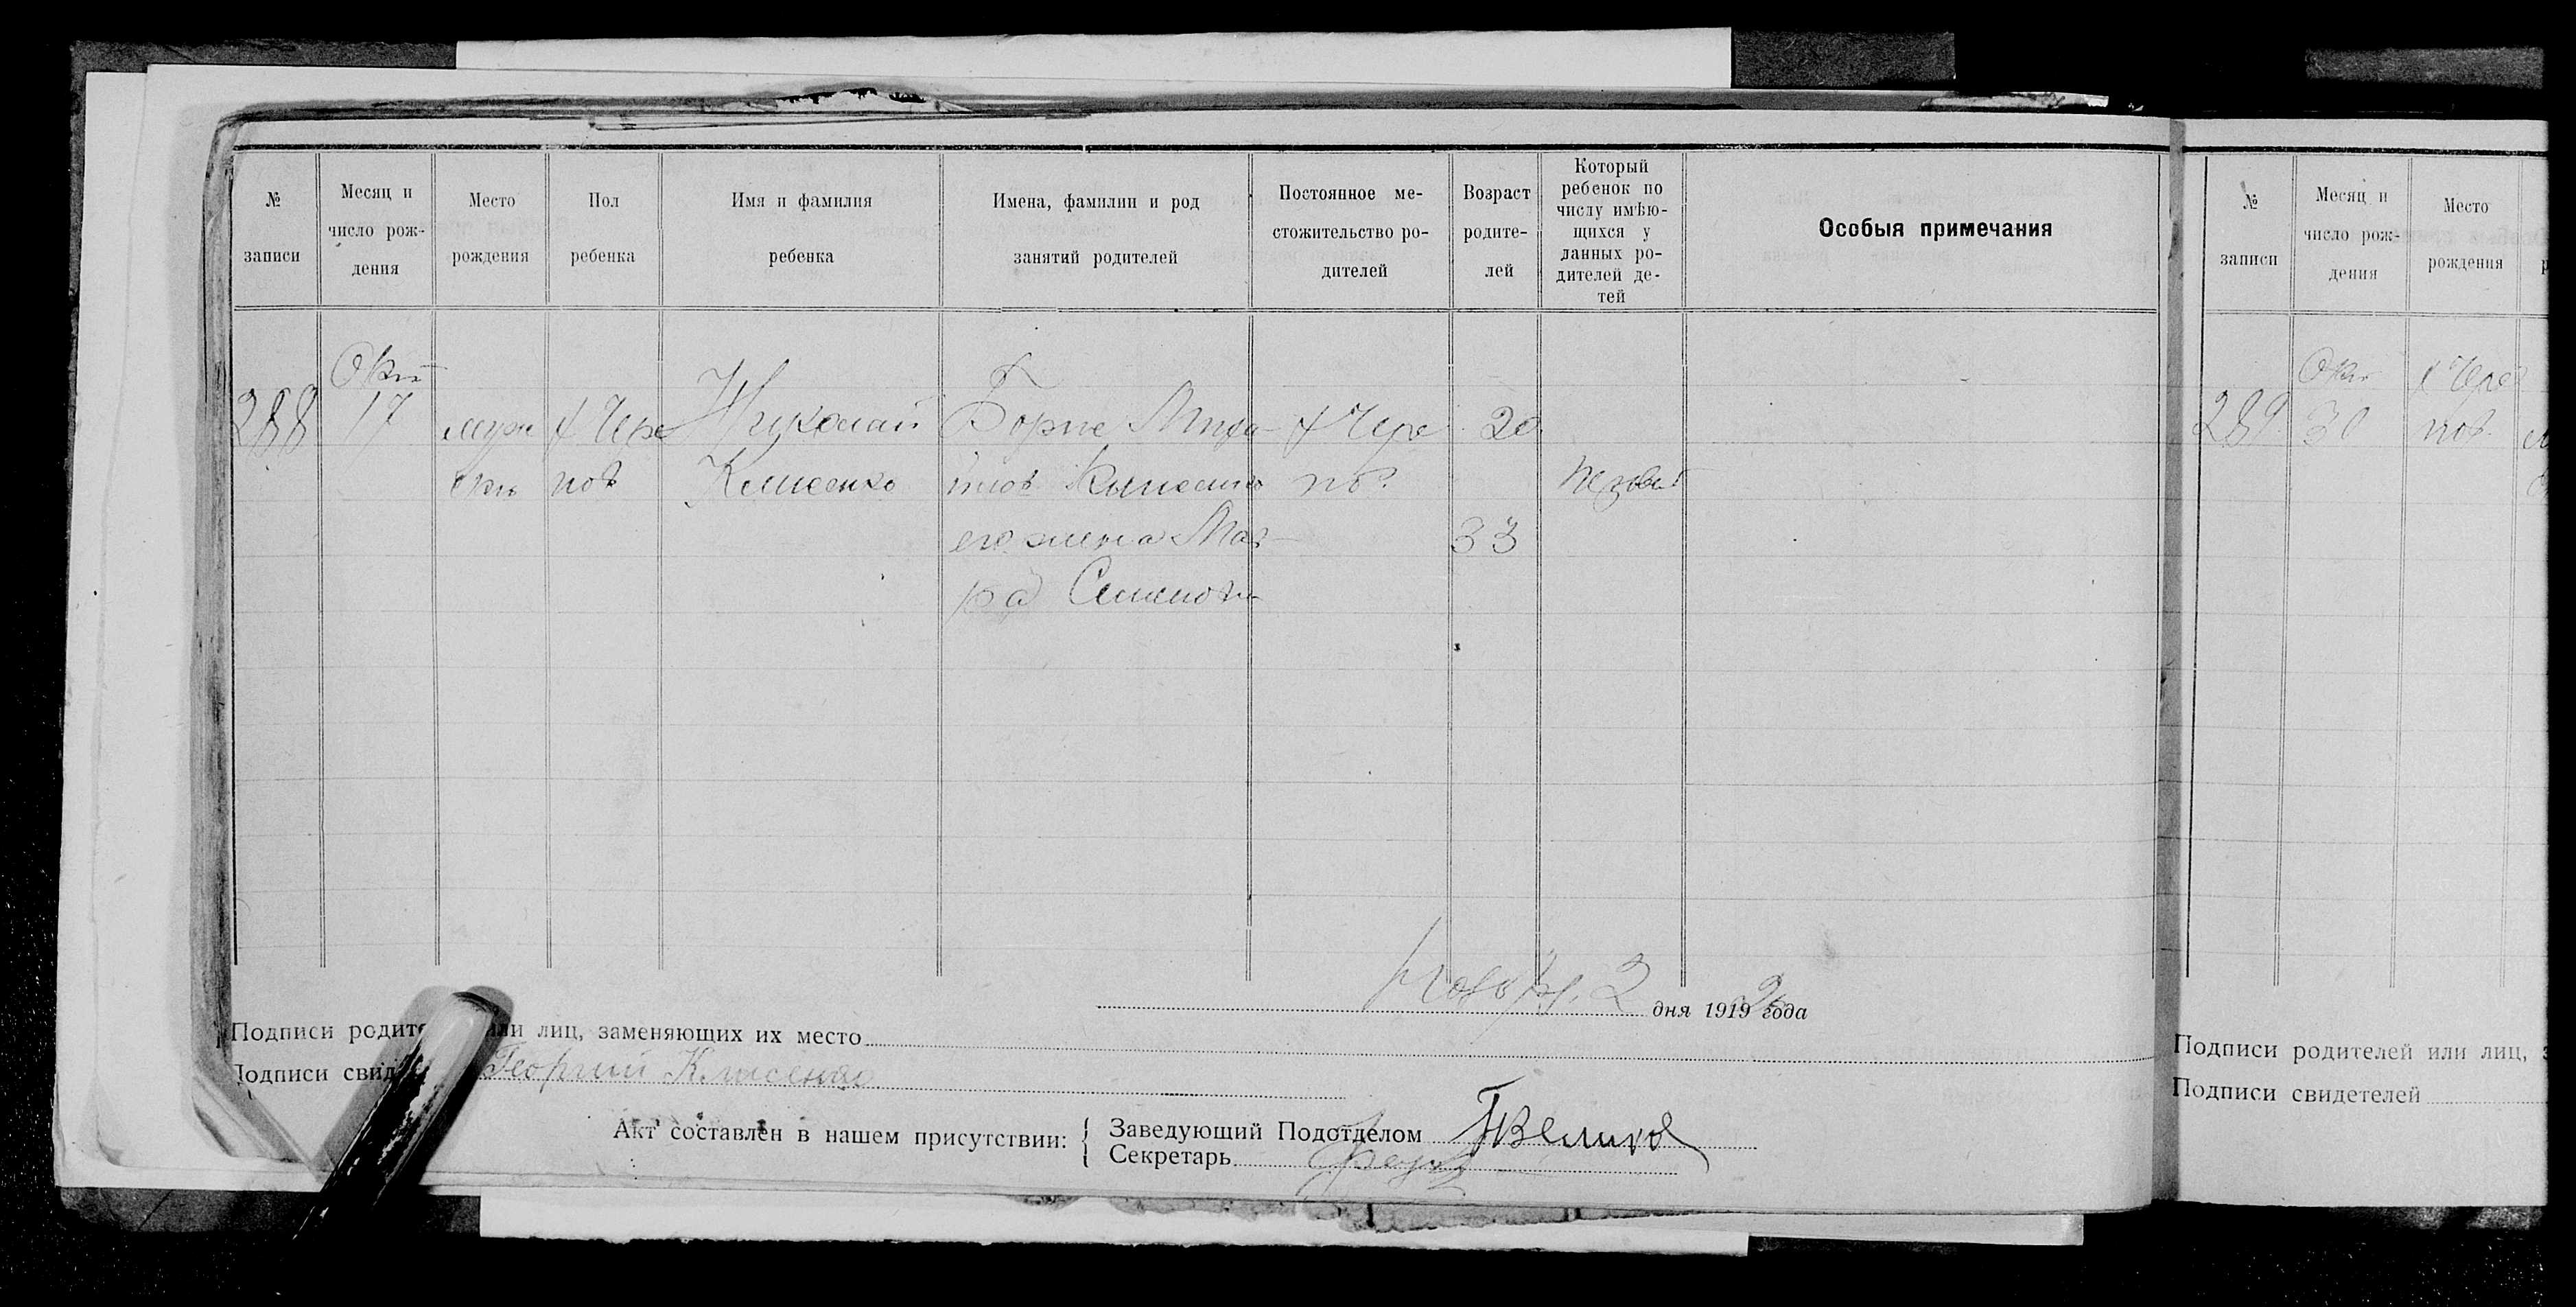 № записи
Месяц и число рождения
Место рождения
Пол ребенка
Имя и фамилия ребенка
Имена, фамилии и род занятий родителей
Постоянное местожительство родителей
Возраст родителей
Который ребенок по числу имѣющихся у данных родителей детей
Особыя примечания
288
Окт
17
муж
х Чере
пов
Николай
Клисенко
Борис
его жена Мав
ра Семенов
х Чере
20
33
Ноябр. 2 дня 1919 года
Подписи родит или лиц, заменяющих их место
Подписи свид Георгий Клисенко
Акт составлен в нашем присутствии:
Заведующий Подотделом
Секретарь
№ записи
Месяц и число рождения
Место рождения
289
Окт
30
х Чере
пов
Подписи родителей или лиц,
Подписи свидетелей